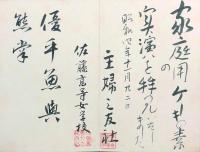 家庭用ケーキ素
の
実演
昭和四年十一月九日
主婦之友社
佐藤高等女学校
優于魚與
熊掌